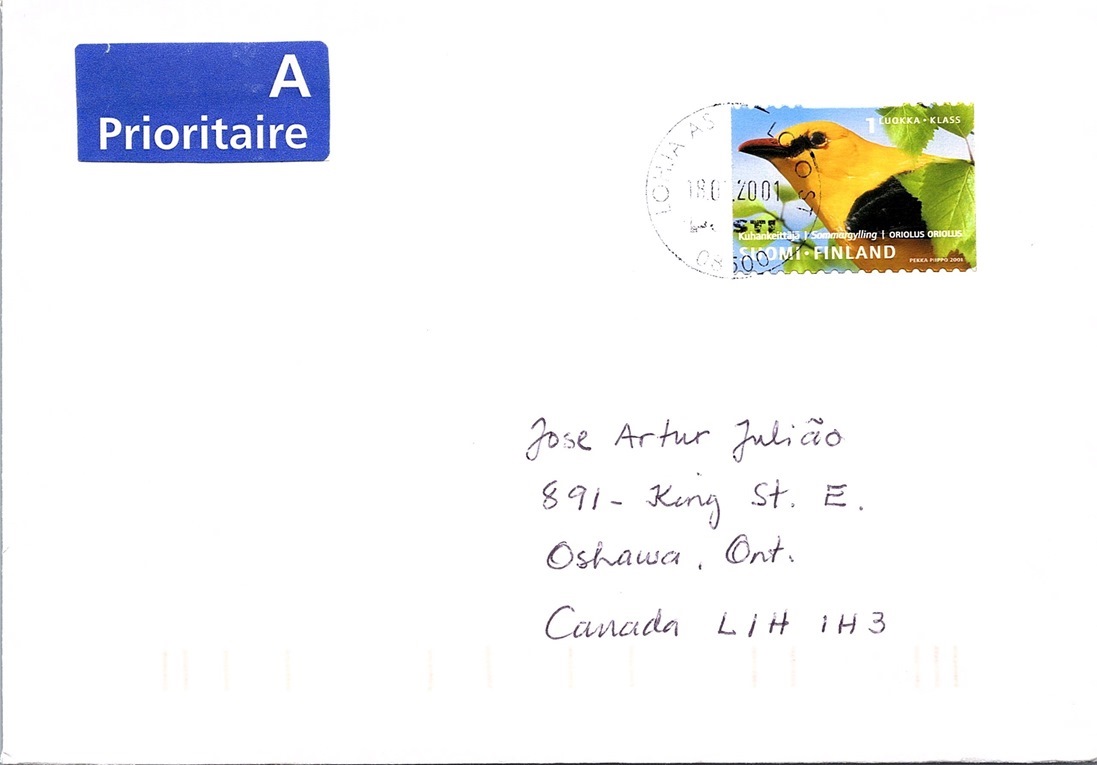 A
Prioritaire
LOHJA AS
18.0 .2001
08500
1 LUOKKA • KLASS
Kuhankeittäjä | Sommargylling | ORIOLUS ORIOLUS
SUOMI • FINLAND
PEKKA PIIPPO 2001
Jose Artur Julião
891- King St. E.
Oshawa, Ont.
Canada L1H 1H3